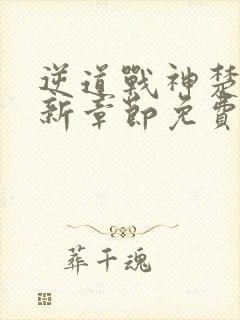 逆道戰神楚
新章節免費
葬千魂